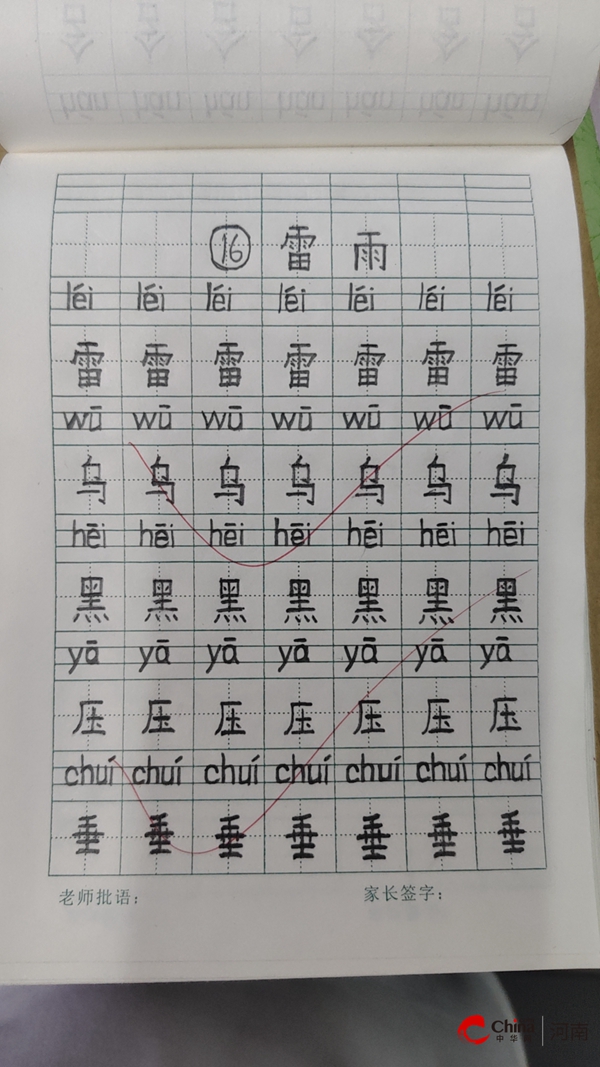 hán hán hán hán hán hán hán
⑯ 雷 雨
léi léi léi léi léi léi léi
雷 雷 雷 雷 雷 雷 雷
wū wū wū wū wū wū wū
乌 乌 乌 乌 乌 乌 乌
hēi hēi hēi hēi hēi hēi hēi
黑 黑 黑 黑 黑 黑 黑
yā yā yā yā yā yā yā
压 压 压 压 压 压 压
chuí chuí chuí chuí chuí chuí chuí
垂 垂 垂 垂 垂 垂 垂
老师批语： 家长签字：
China 河南
中华